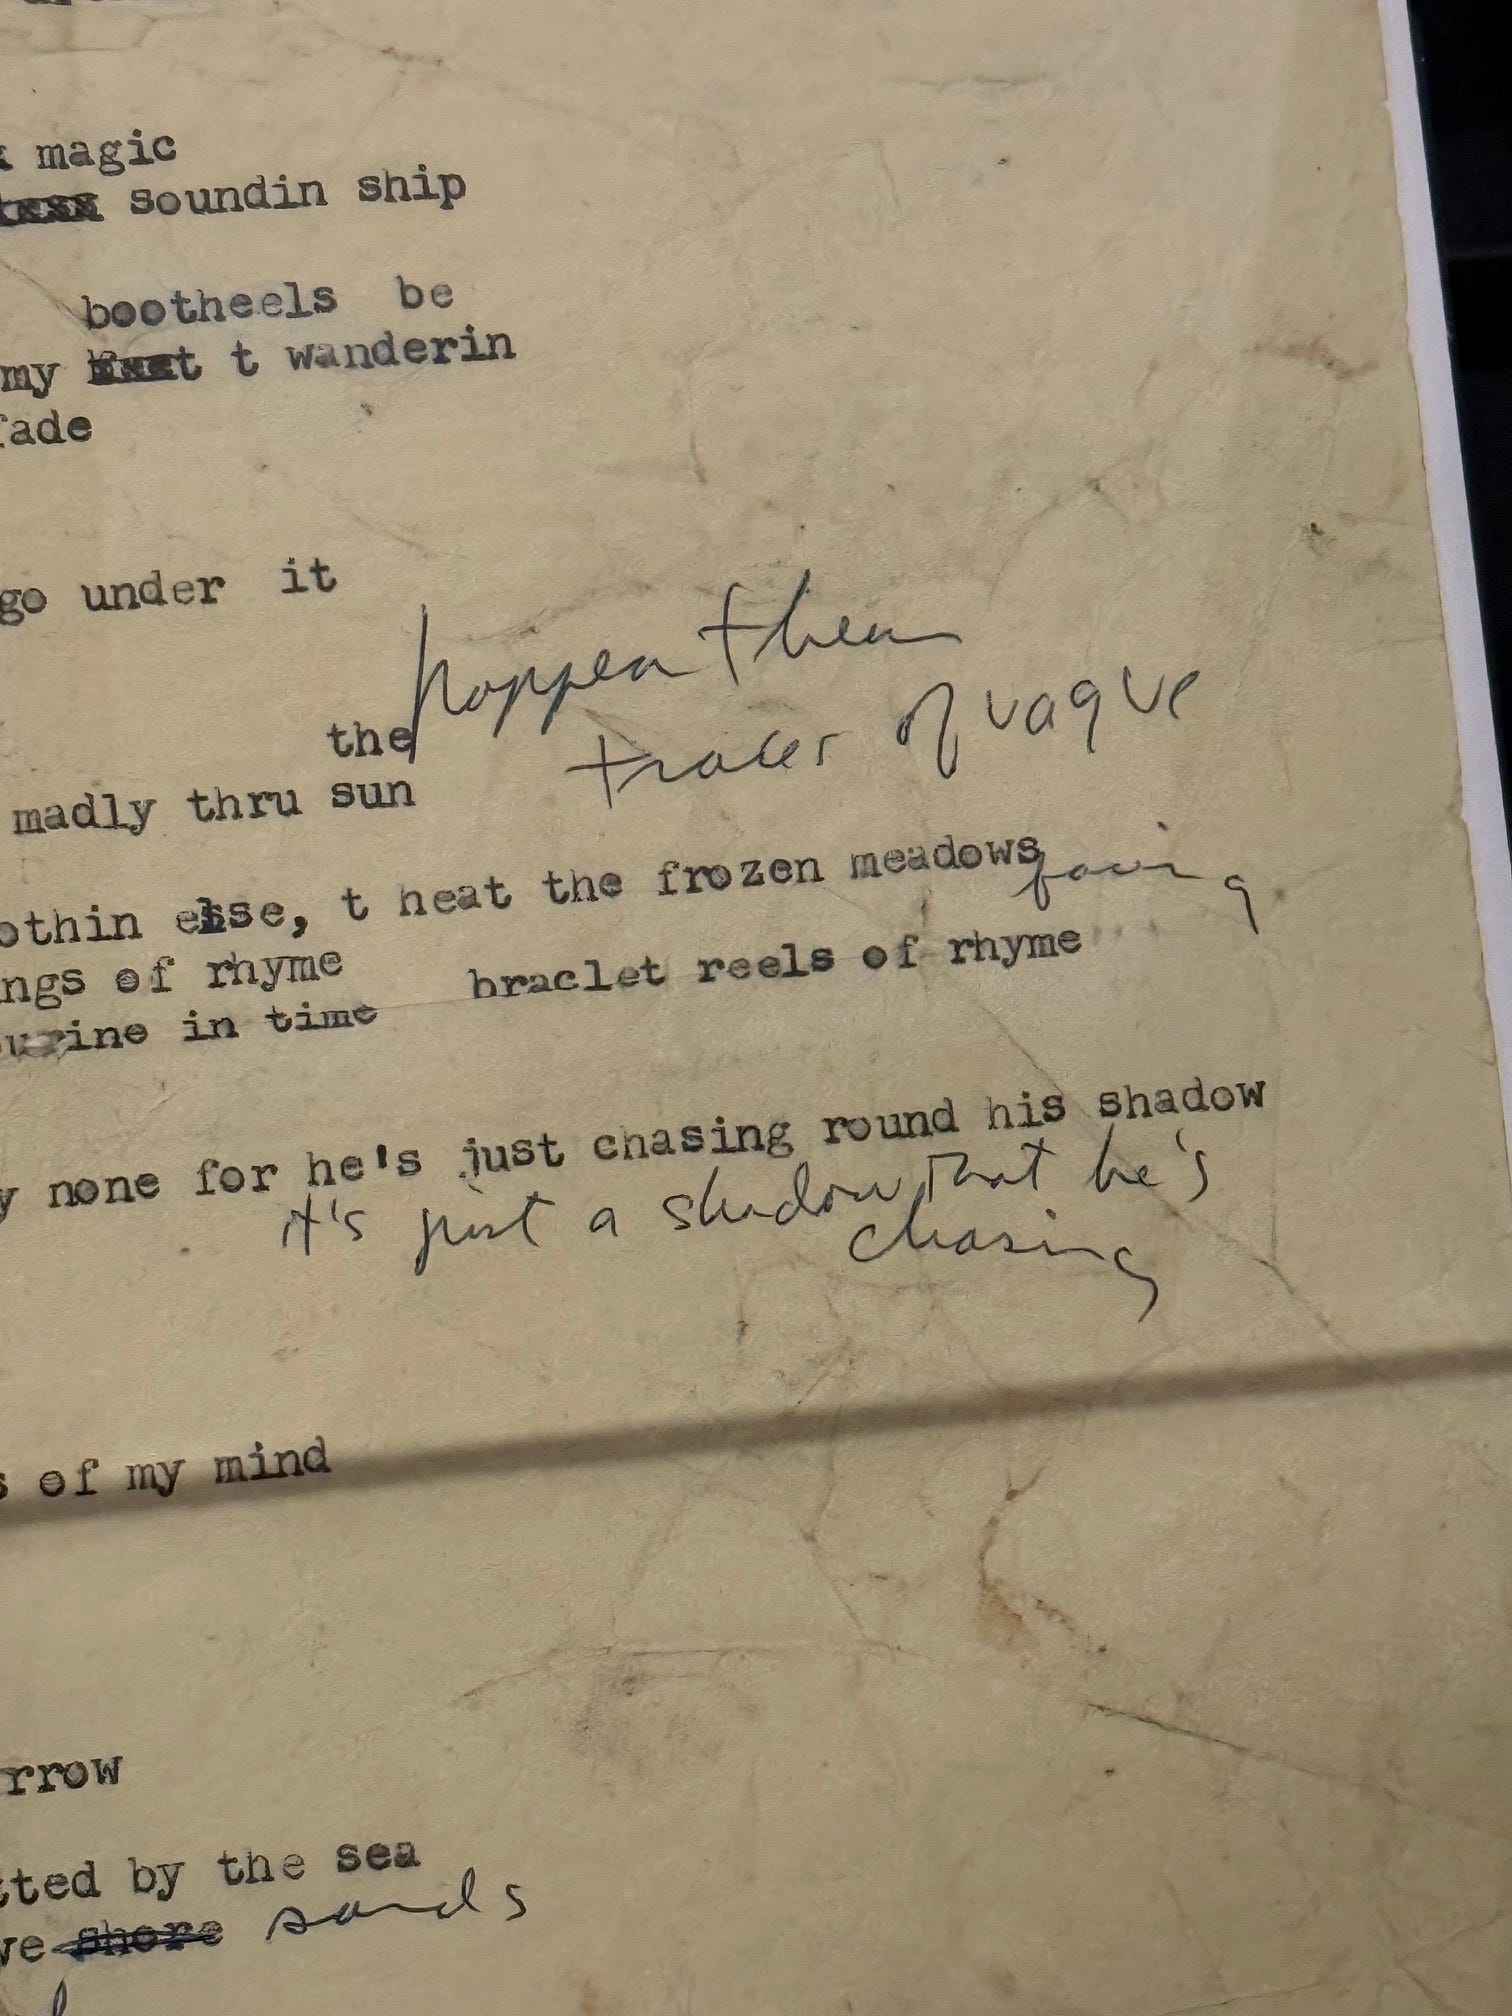 magic
soundin ship
bootheels be
my t wanderin
fade
go under it
happen then
the traces of vague
madly thru sun
othin else, t heat the frozen meadows
ngs of rhyme braclet reels of rhyme
urine in time
y none for he's just chasing round his shadow
it's just a shadow that he's
chasing
s of my mind
rrow
tted by the sea
ve shore sands